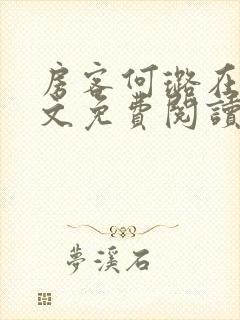 房客何璐在
文免費閱讀
夢溪石